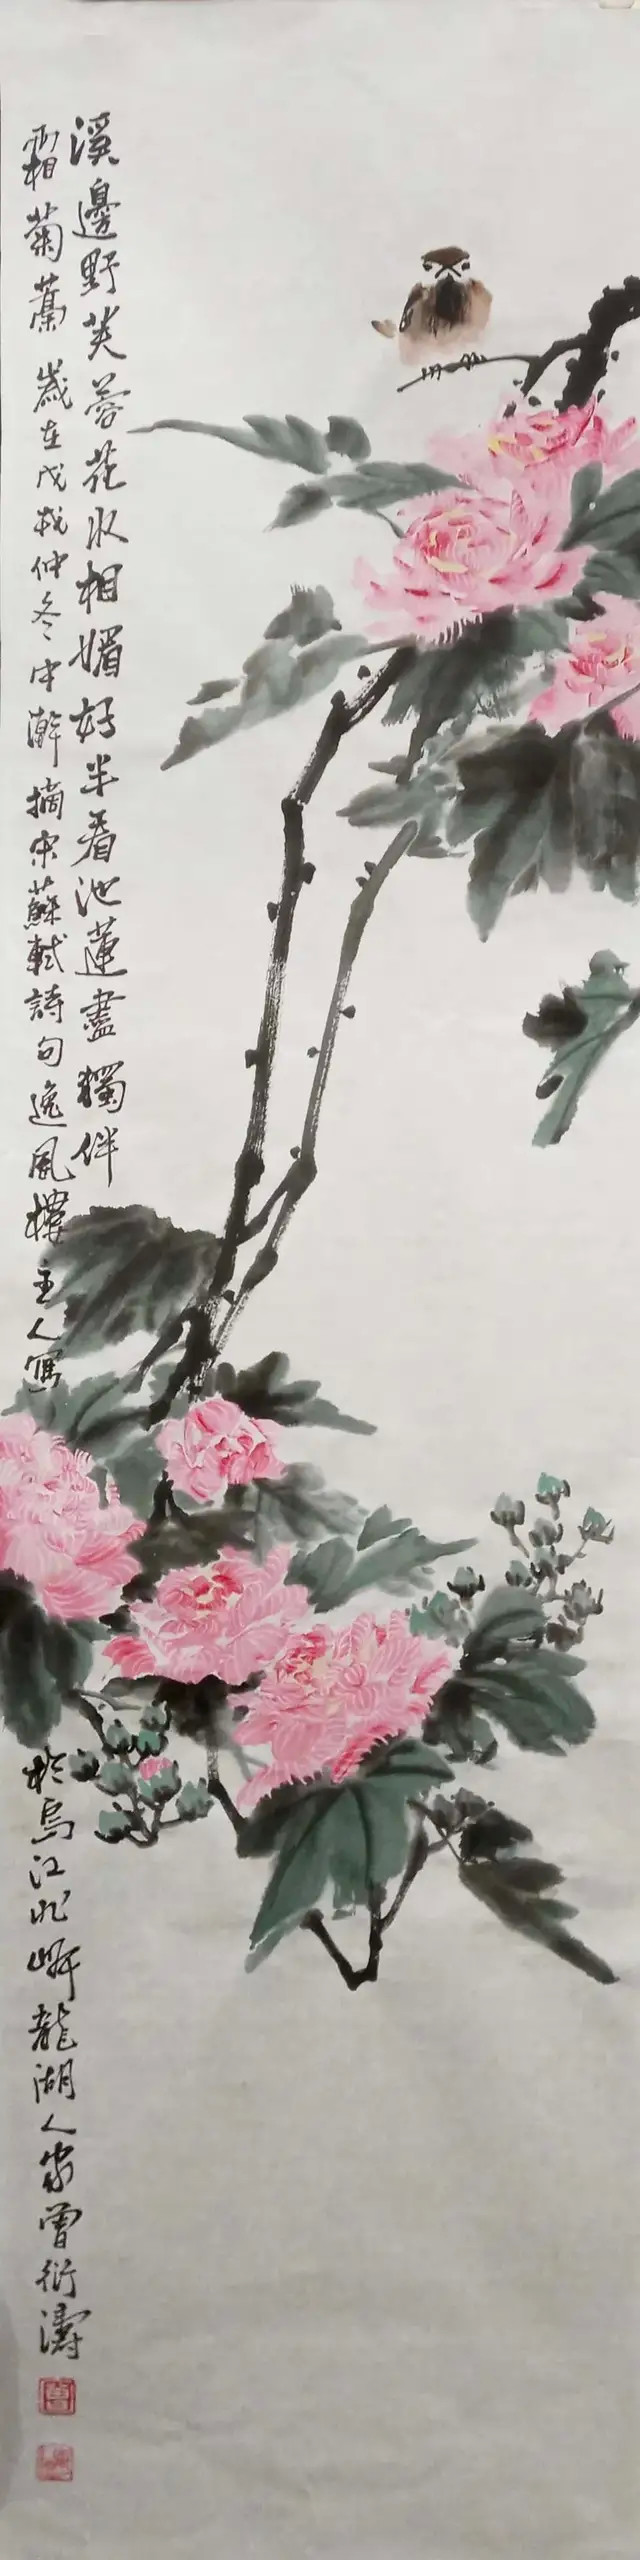 溪邊野芙蓉花水相媚好半看池蓮盡獨伴
霜菊藁歲在戊戌仲冬中澣摘宋蘇軾詩句逸風樓主人寫
於烏江北岸龍湖人家曾衍濤